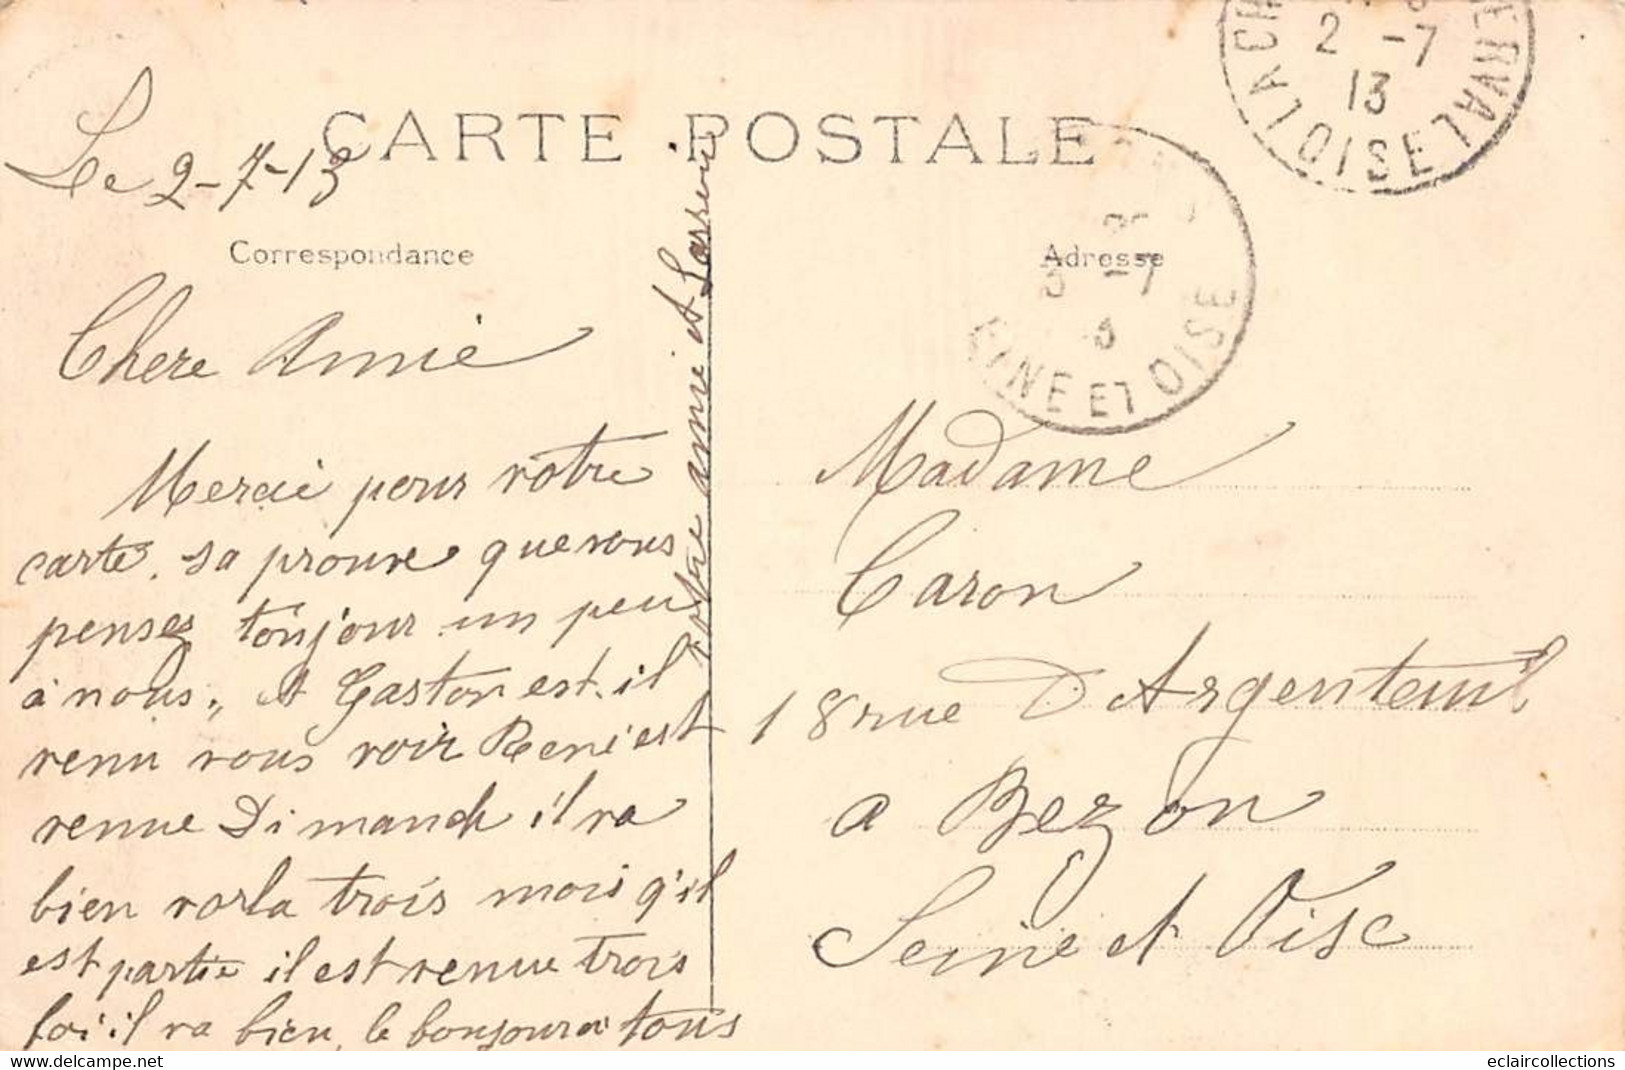 CARTE POSTALE
Le 2-7-13
Correspondance
Chere Amie
Mercie pour votre
carte. sa prouve que vous
pensez toujour un peu
à nous., et Gaston est.il
venu vous voir Rene' est
venue Dimanch il va
bien vorla trois mois q'il
est partie il est venue trois
foi il va bien, le bonjour a tous
votre amie et
Adresse
Madame
Caron
18 rue D Argenteuil
a Bezon
Seine et Oise
2 -7
13
OISE
3 -7
3
SEINE ET OISE
eclaircollections